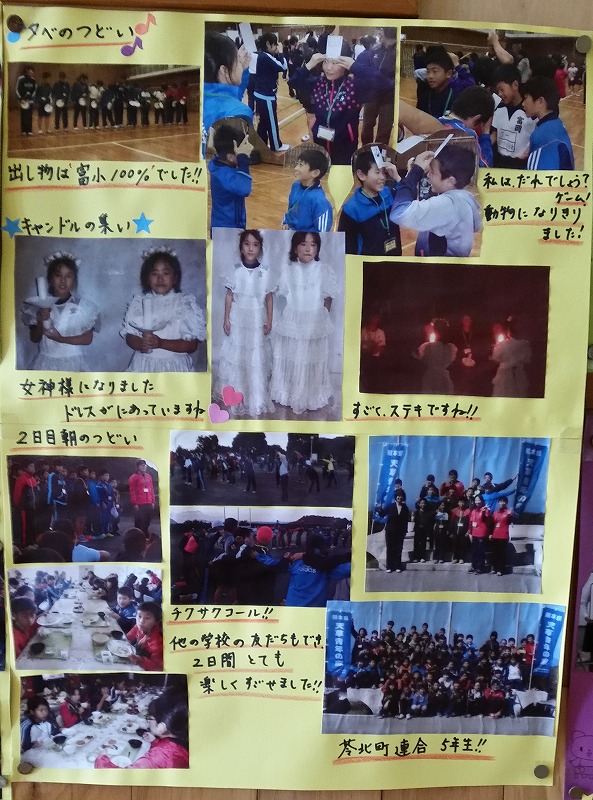 夕べのつどい
出し物は"富小100%"でした!!
私は、だれでしょう?
ゲーム!
動物になりきり
ました!
キャンドルの集い
女神様になりました
ドレスがにあっていますね
すごく、ステキですね!!
2日目朝のつどい
チクサクコール!!
他の学校の友だちもでき、
2日間 とても
楽しくすごせました!!
熊本県
天草青年の家
苓北町連合 5年生!!